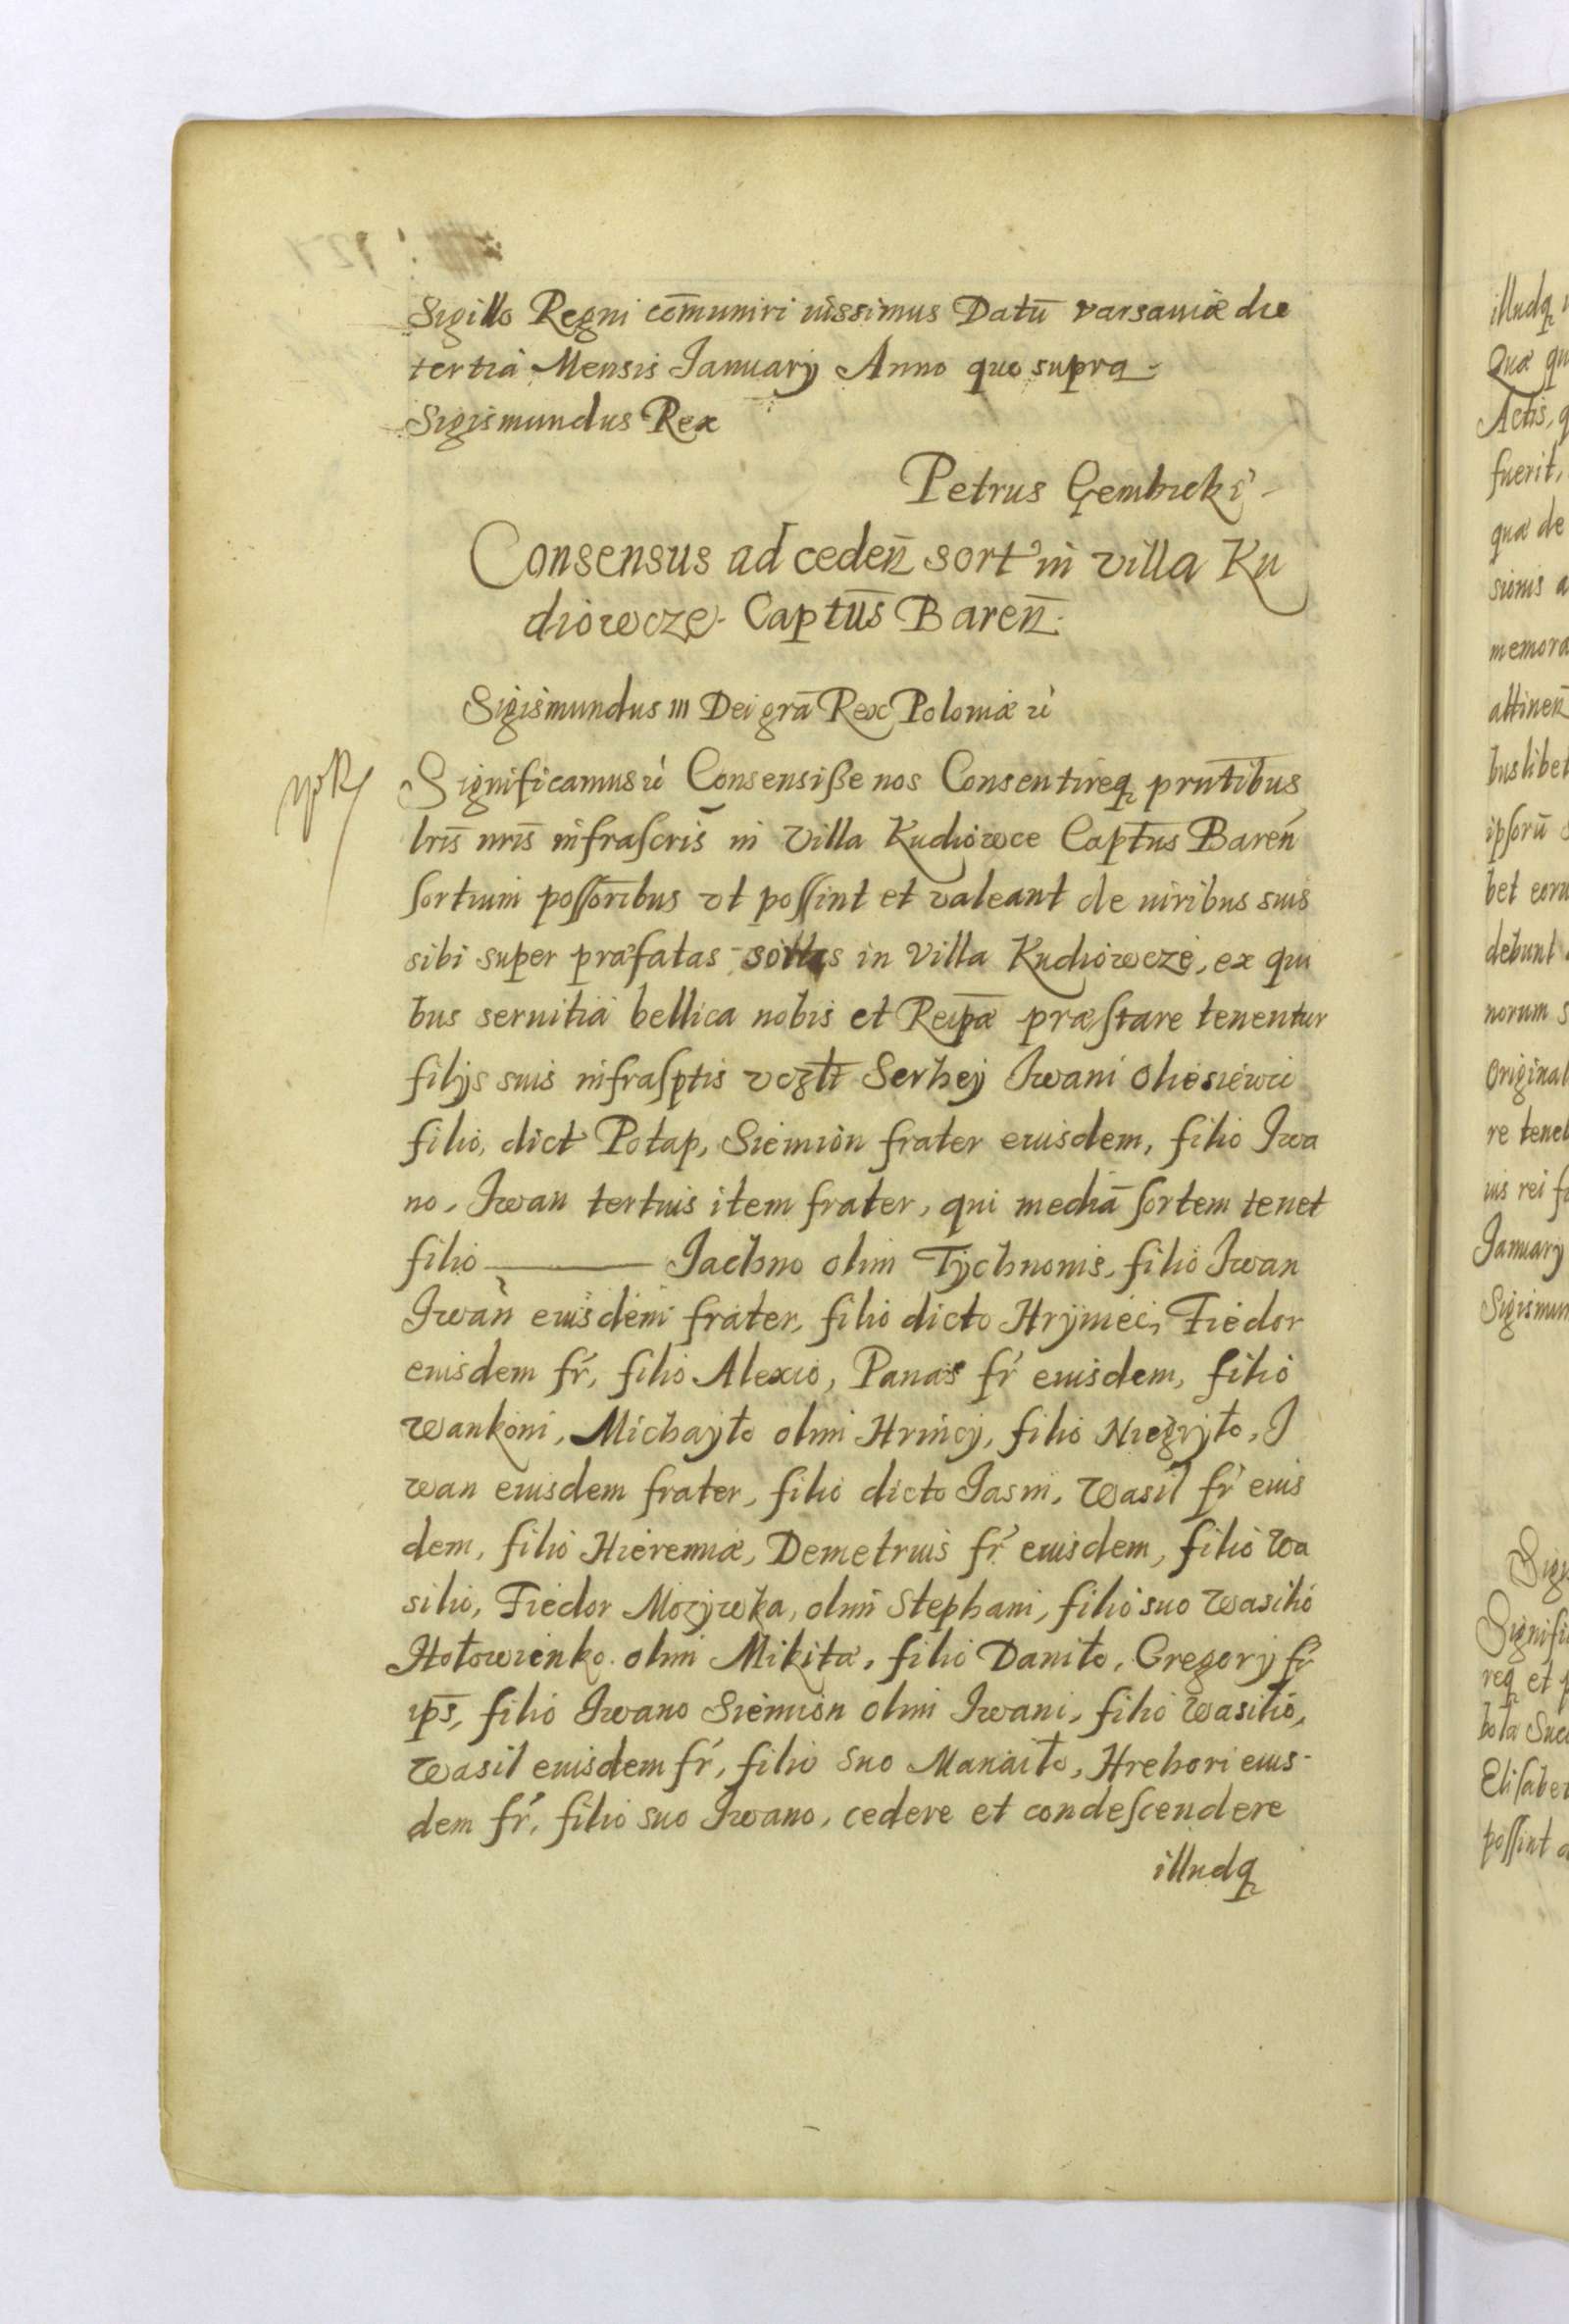 Sigillo Regni com̄uniri iussimus Datū varsauiæ die
tertia Mensis Ianuarij Anno quo supra
Sigismundus Rex
Petrus Gembicki
Consensus ad ceden̄ sort in villa Ku
diowcze Captūs Baren̄
Sigismundus III Dei grā Rex Poloniæ
Significamus Consensiße nos Consentireq prntibus
lris nris infrascris in Villa Kudiowce Captus Baren
sortium possoribus vt possint et valeant de iuribus suis
sibi super præfatas sortes in Villa Kudiowcze, ex qui
bus seruitia bellica nobis et Reipæ præstare tenentur
filijs suis infrasptis vczlt Serhey Iwani Oliesiewic
filio, dict Potap, Siemion frater eiusdem, filio Iwa
no, Iwan tertius item frater, qui mediā sortem tenet
filio ——— Iachno olim Tychnonis, filio Iwan
Iwan eiusdem frater, filio dicto Hrymeci, Fiedor
eiusdem fr, filio Alexio, Panas fr eiusdem, filio
Wankoni, Michayło olim Hrincy, filio Niegryło, I
wan eiusdem frater, filio dicto Iasni, Wasil fr eius
dem, filio Hieremiæ, Demetrius fr eiusdem, filio Wa
silio, Fiedor Mozywka, olim Stephani, filio suo Wasilio
Hołowienko olim Mikita, filio Daniło, Gregorij fr
ips, filio Iwano Siemion olim Iwani, filio Wasilio,
Wasil eiusdem fr, filio suo Manaiło, Hrehori eius-
dem fr, filio suo Iwano, cedere et condescendere
illudq
illudq
Quæ qu
Actis, q
fuerit,
quæ de
sionis a
memora
attinen̄
buslibet
ipsorū
bet eoru
debunt
norum s
Original
re teneb
ius rei f
Ianuarij
Sigismun
Sigi
Signifi
req et p
bola Suc
Elisabet
possint a